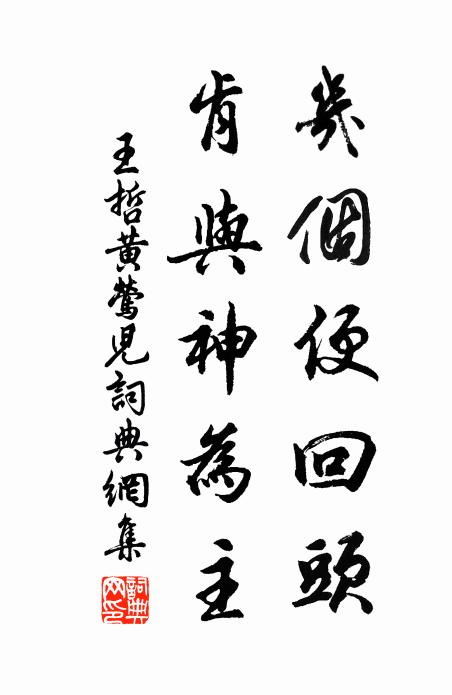 幾個便回頭
肯與神為主
王哲黃鶯兒詞典網集
詞典网印